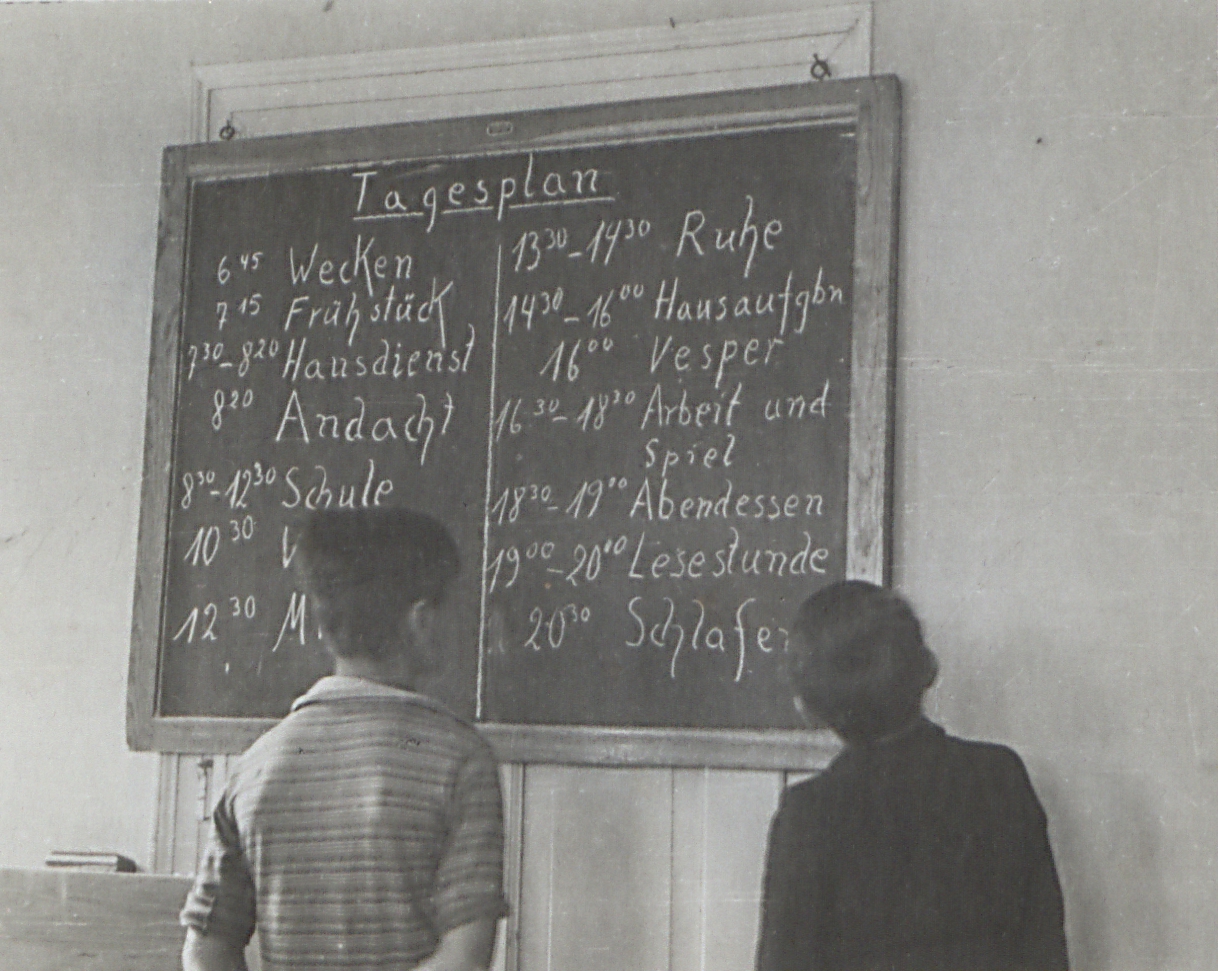 Tagesplan
6 45 Wecken
7 15 Frühstück
7 30 - 8 20 Hausdienst
8 20 Andacht
8 30 - 12 30 Schule
10 30
12 30
13 30 - 14 30 Ruhe
14 30 - 16 00 Hausaufgbn
16 00 Vesper
16 30 - 18 30 Arbeit und
Spiel
18 30 - 19 00 Abendessen
19 00 - 20 00 Lesestunde
20 30 Schlafen